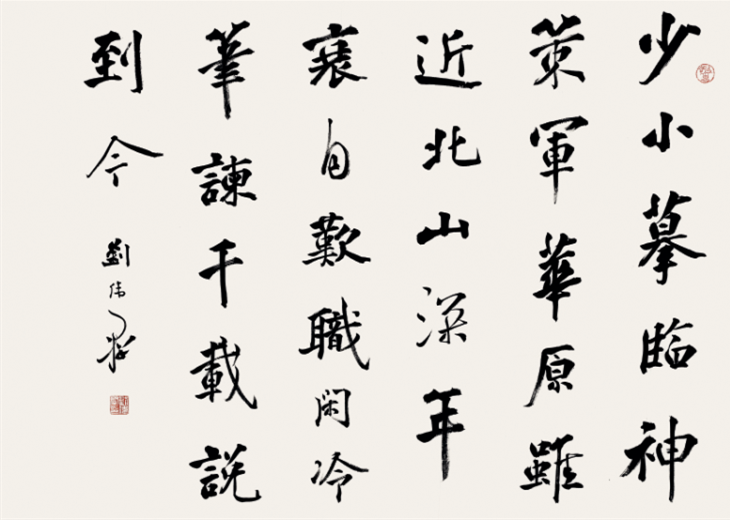 少小摹臨神
策軍華原雖
近北山深年
衰自歎職閑冷
筆諫千載説
到今
劉偉